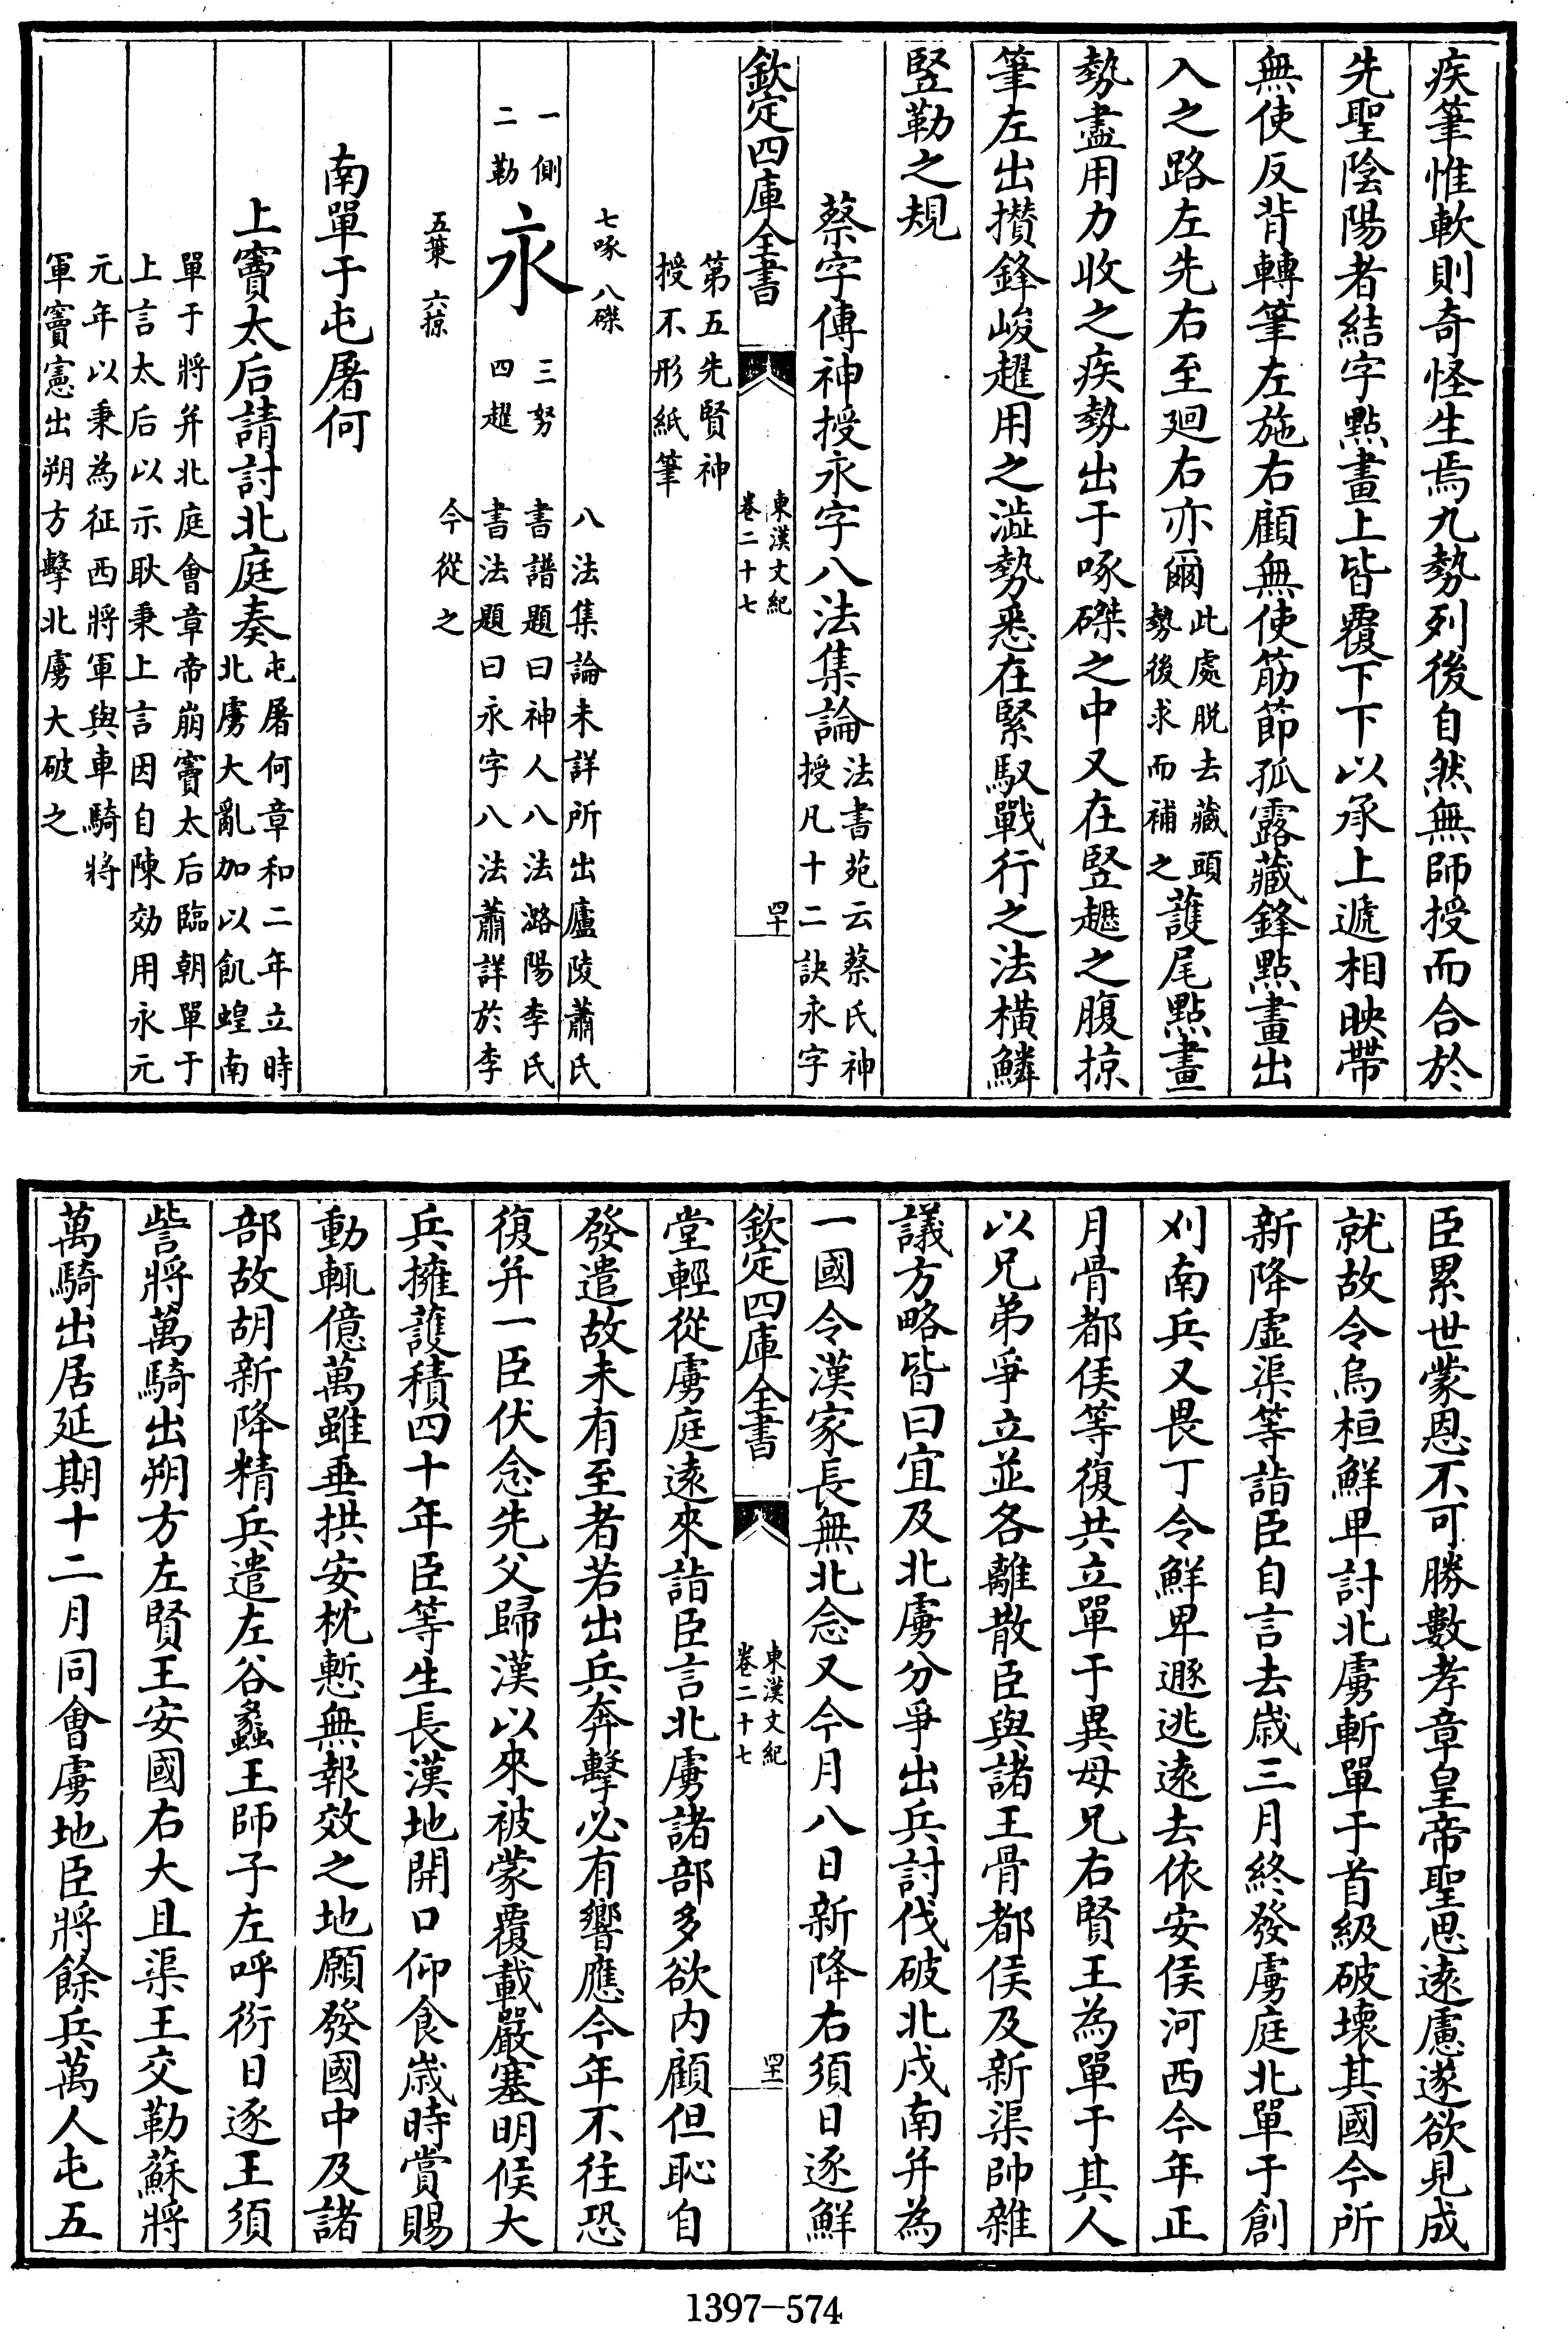 疾筆惟軟則奇怪生焉九勢列後自然無師授而合於
先聖陰陽者結字點畫上皆覆下下以承上遞相映帶
無使反背轉筆左施右顧無使筋節孤露藏鋒點畫出
入之路左先右至廻右亦爾此處脱去藏頭
勢後求而補之護尾點畫
勢盡用力收之疾勢出于啄磔之中又在竪趯之腹掠
筆左出攅鋒峻趯用之澁勢悉在緊馭戰行之法橫鱗
竪勒之規
蔡字傳神授永字八法集論法書苑云蔡氏神
授凡十二訣永字
欽定四庫全書
東漢文紀
卷二十七
四十
第五先賢神
授不形紙筆
七啄 八磔
一側 三努
永
二勒 四趯
五策 六掠
八法集論未詳所出廬陵蕭氏
書譜題曰神人八法潞陽李氏
書法題曰永字八法蕭詳於李
今從之
南單于屯屠何
上竇太后請討北庭奏屯屠何章和二年立時
北虜大亂加以飢蝗南
單于將并北庭會章帝崩竇太后臨朝單于
上言太后以示耿秉秉上言因自陳効用永元
元年以秉為征西將軍與車騎將
軍竇憲出朔方擊北虜大破之
臣累世蒙恩不可勝數孝章皇帝聖思遠慮遂欲見成
就故令烏桓鮮卑討北虜斬單于首級破壞其國今所
新降虛渠等詣臣自言去歲三月終發虜庭北單于創
刈南兵又畏丁令鮮卑遯逃遠去依安侯河西今年正
月骨都侯等復共立單于異母兄右賢王為單于其人
以兄弟爭立並各離散臣與諸王骨都侯及新渠帥雜
議方略皆曰宜及北虜分爭出兵討伐破北戍南并為
一國令漢家長無北念又今月八日新降右須日逐鮮
欽定四庫全書
東漢文紀
卷二十七
四十一
堂輕從虜庭遠來詣臣言北虜諸部多欲内顧但恥自
發遣故未有至者若出兵奔擊必有響應今年不往恐
復并一臣伏念先父歸漢以來被蒙覆載嚴塞明候大
兵擁護積四十年臣等生長漢地開口仰食歲時賞賜
動輒億萬雖垂拱安枕慙無報效之地願發國中及諸
部故胡新降精兵遣左谷蠡王師子左呼衍日逐王須
訾將萬騎出朔方左賢王安國右大且渠王交勒蘇將
萬騎出居延期十二月同會虜地臣將餘兵萬人屯五
1397—574